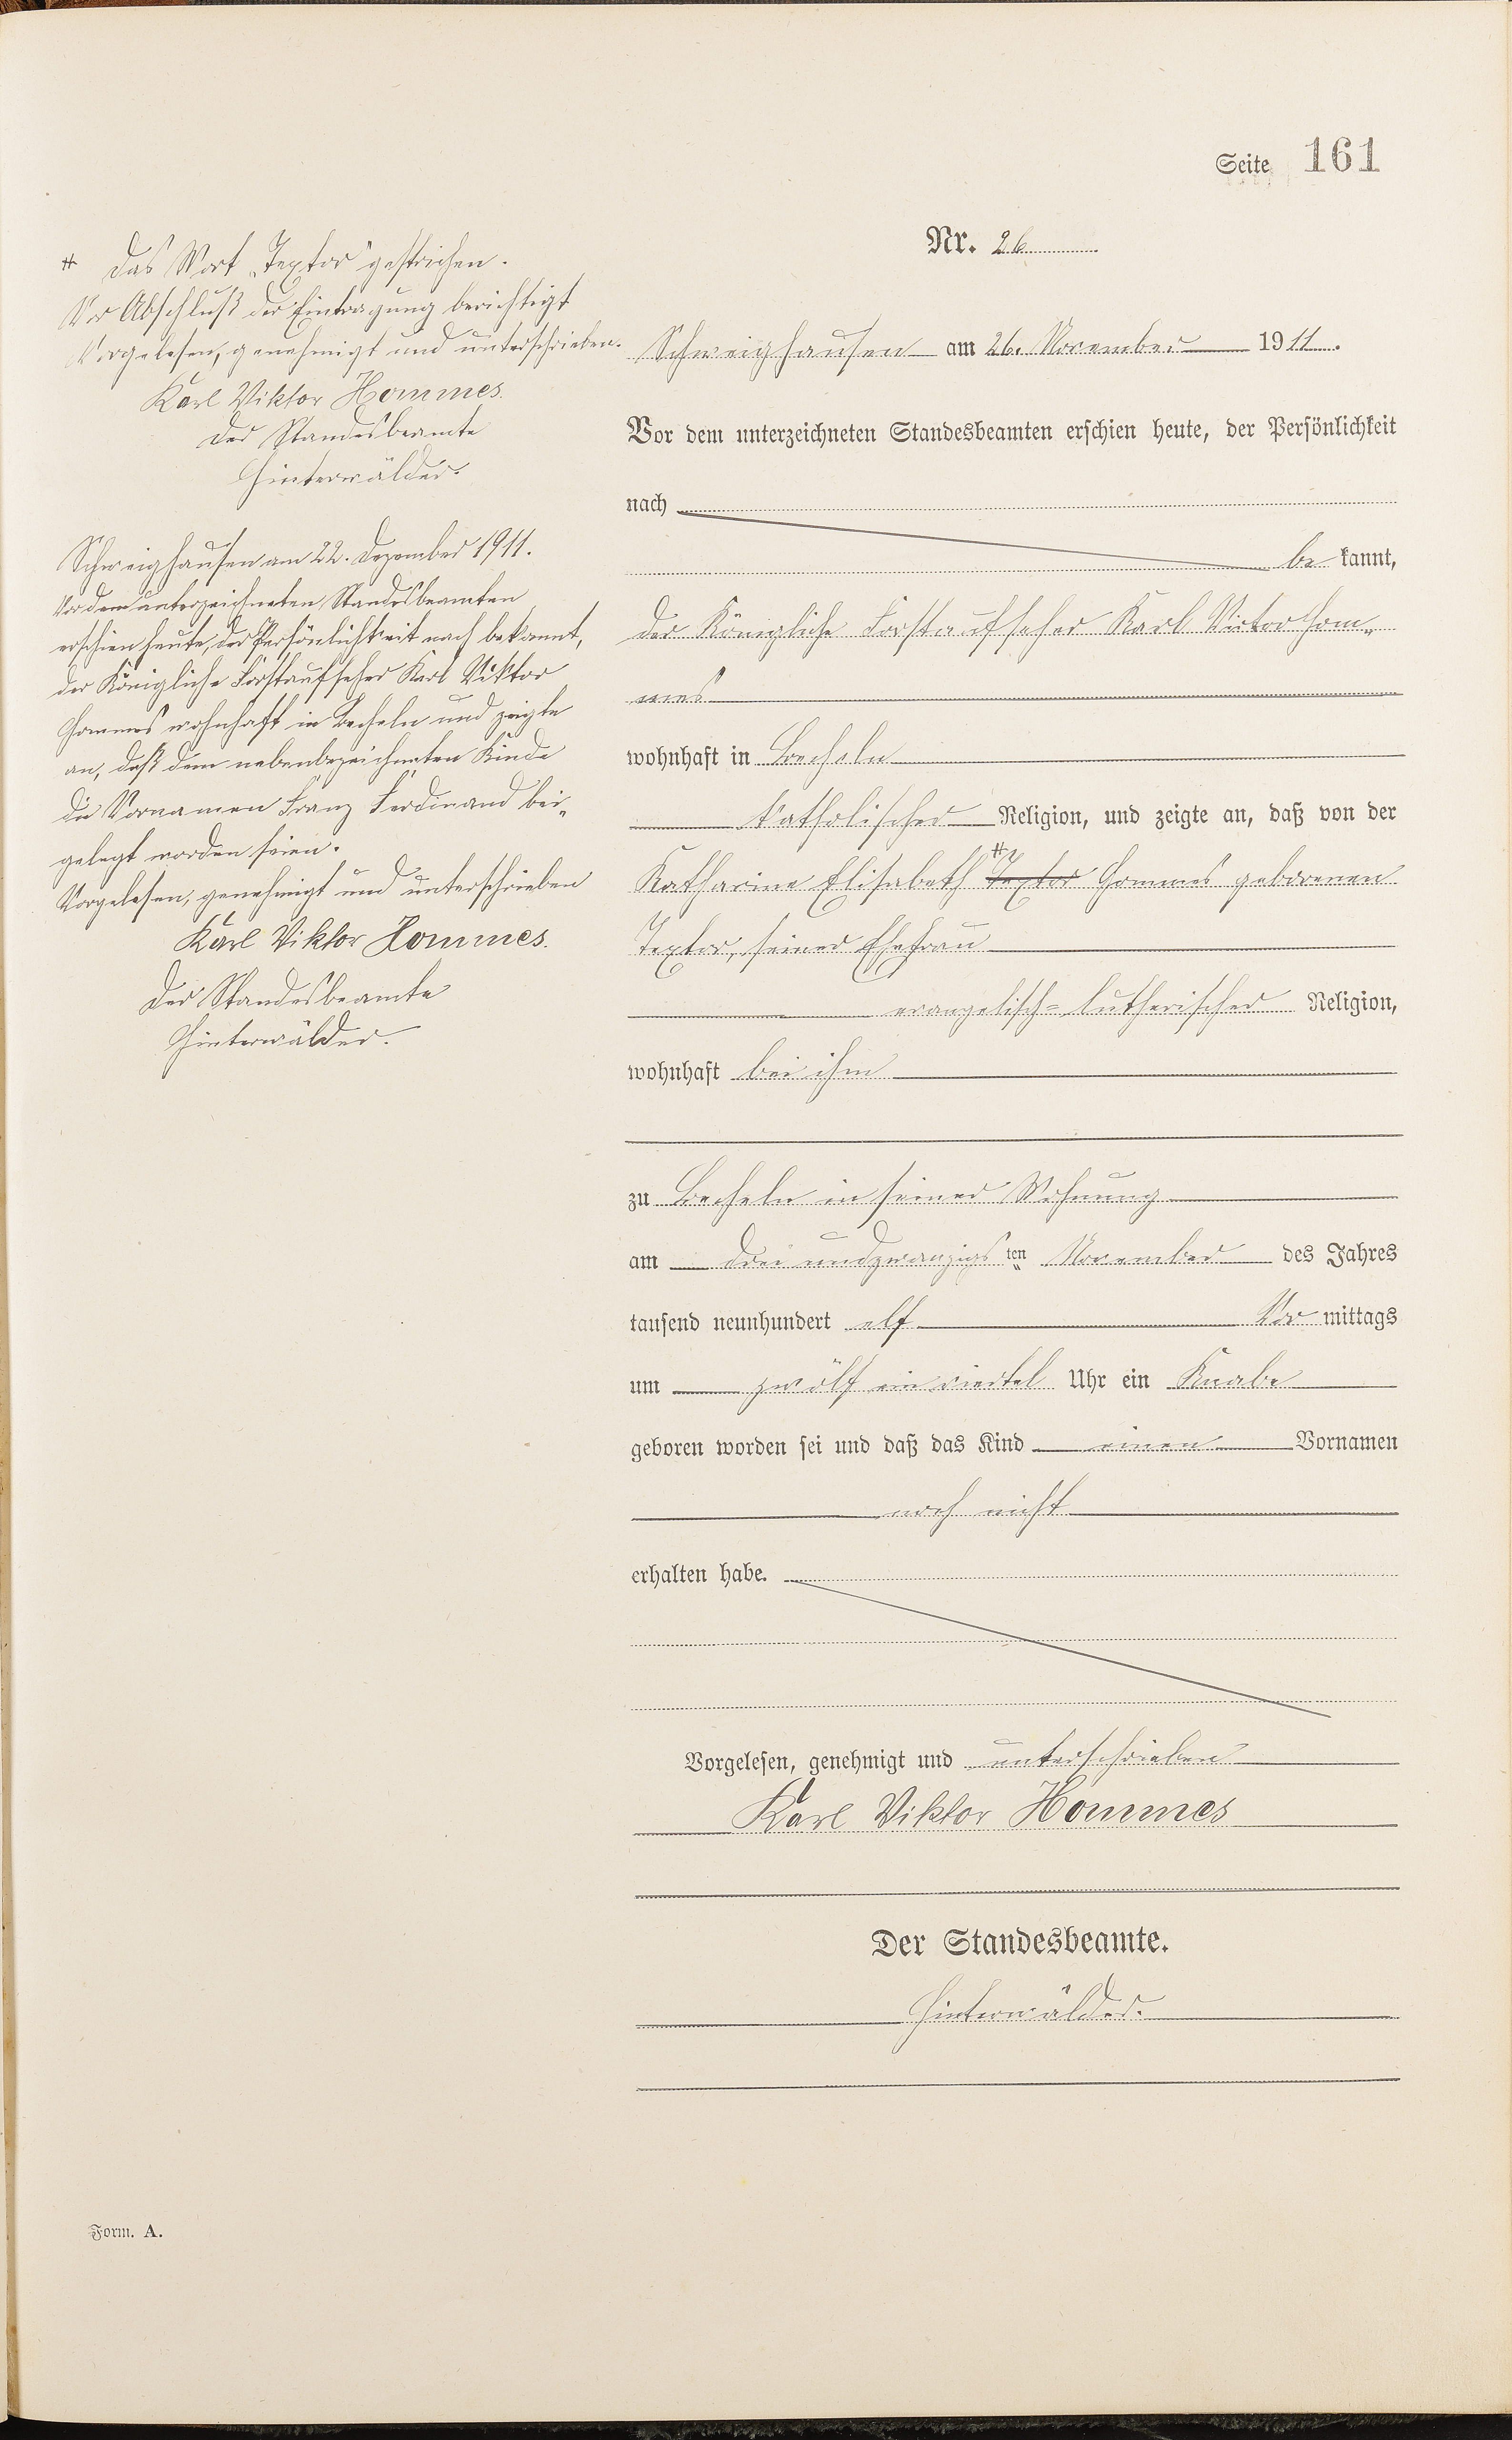 Seite 161
Nr. 26
# Das Wort „Textor" gestrichen.
Vor Abschluß der Eintragung berichtigt
Vorgelesen, genehmigt und unterschrieben.
Karl Viktor Hommes.
Der Standesbeamte
Hinterwälder.
Schweighausen am 22. Dezember 1911.
Vor dem unterzeichneten Standesbeamten
erschien heute, der Persönlichkeit nach bekannt,
der Königliche Forstaufseher Karl Viktor
Hommes wohnhaft in Becheln und zeigte
an, daß dem nebenbezeichneten Kinde
die Vornamen Franz Ferdinand bei-
gelegt worden seien.
Vorgelesen, genehmigt und unterschrieben
Karl Viktor Hommes.
Der Standesbeamte
Hinterwälder.
Schweighausen am 26. November 1911.
Vor dem unterzeichneten Standesbeamten erschien heute, der Persönlichkeit
nach
be kannt,
der Königliche Forstaufseher Karl Victor Hom-
mes
wohnhaft in Becheln
katholischer Religion, und zeigte an, daß von der
#
Katharine Elisabeth Textor Hommes geborenen
Textor, seiner Ehefrau
evangelisch-lutherischer Religion,
wohnhaft bei ihm
zu Becheln in seiner Wohnung
am drei und zwanzigs ten November des Jahres
tausend neunhundert elf Vor mittags
um zwölf ein viertel Uhr ein Knabe
geboren worden sei und daß das Kind einen Vornamen
noch nicht
erhalten habe.
Vorgelesen, genehmigt und unterschrieben
Karl Viktor Hommes
Der Standesbeamte.
Hinterwälder.
Form. A.